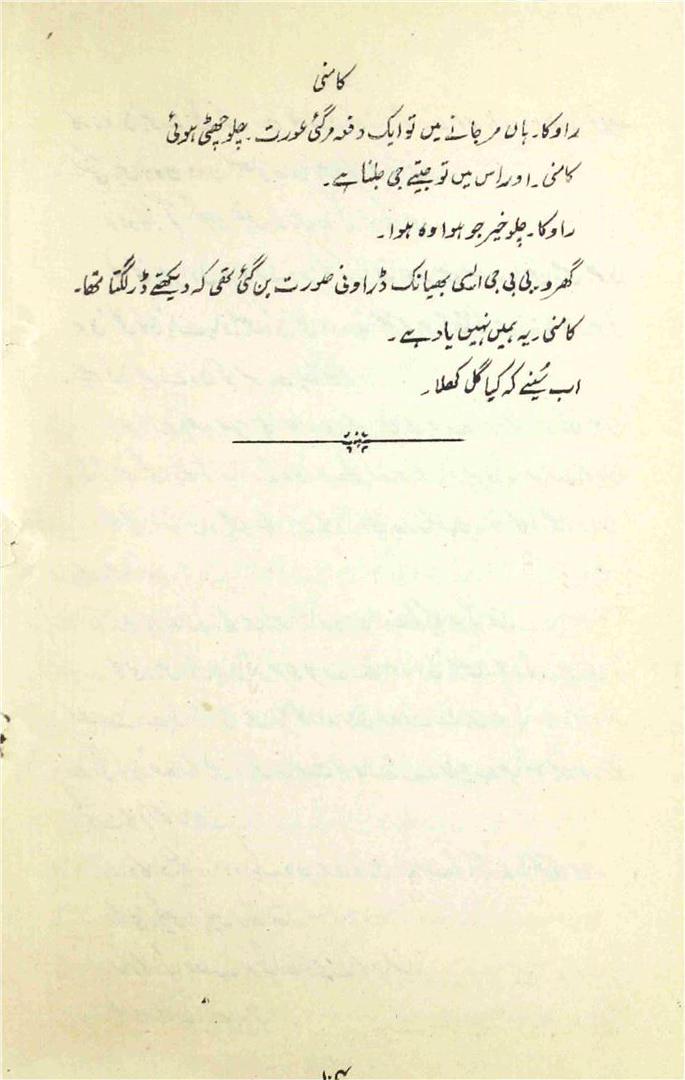 کامنی
راوکا۔ ہاں مرجانے میں تو ایک دفعہ مرگئی عورت۔ چلو چھٹی ہوئی
کامنی۔ اور اس میں تو جیتے جی جلنا ہے۔
راوکا۔ چلو خیر جو ہوا وہ ہوا۔
گھرو۔ بی بی جی ایسی بھیانک ڈراونی صورت بن گئی تھی کہ دیکھتے ڈر لگتا تھا۔
کامنی۔ یہ ہمیں نہیں یاد ہے۔
اب سُنیے کہ کیا گل کھلا۔